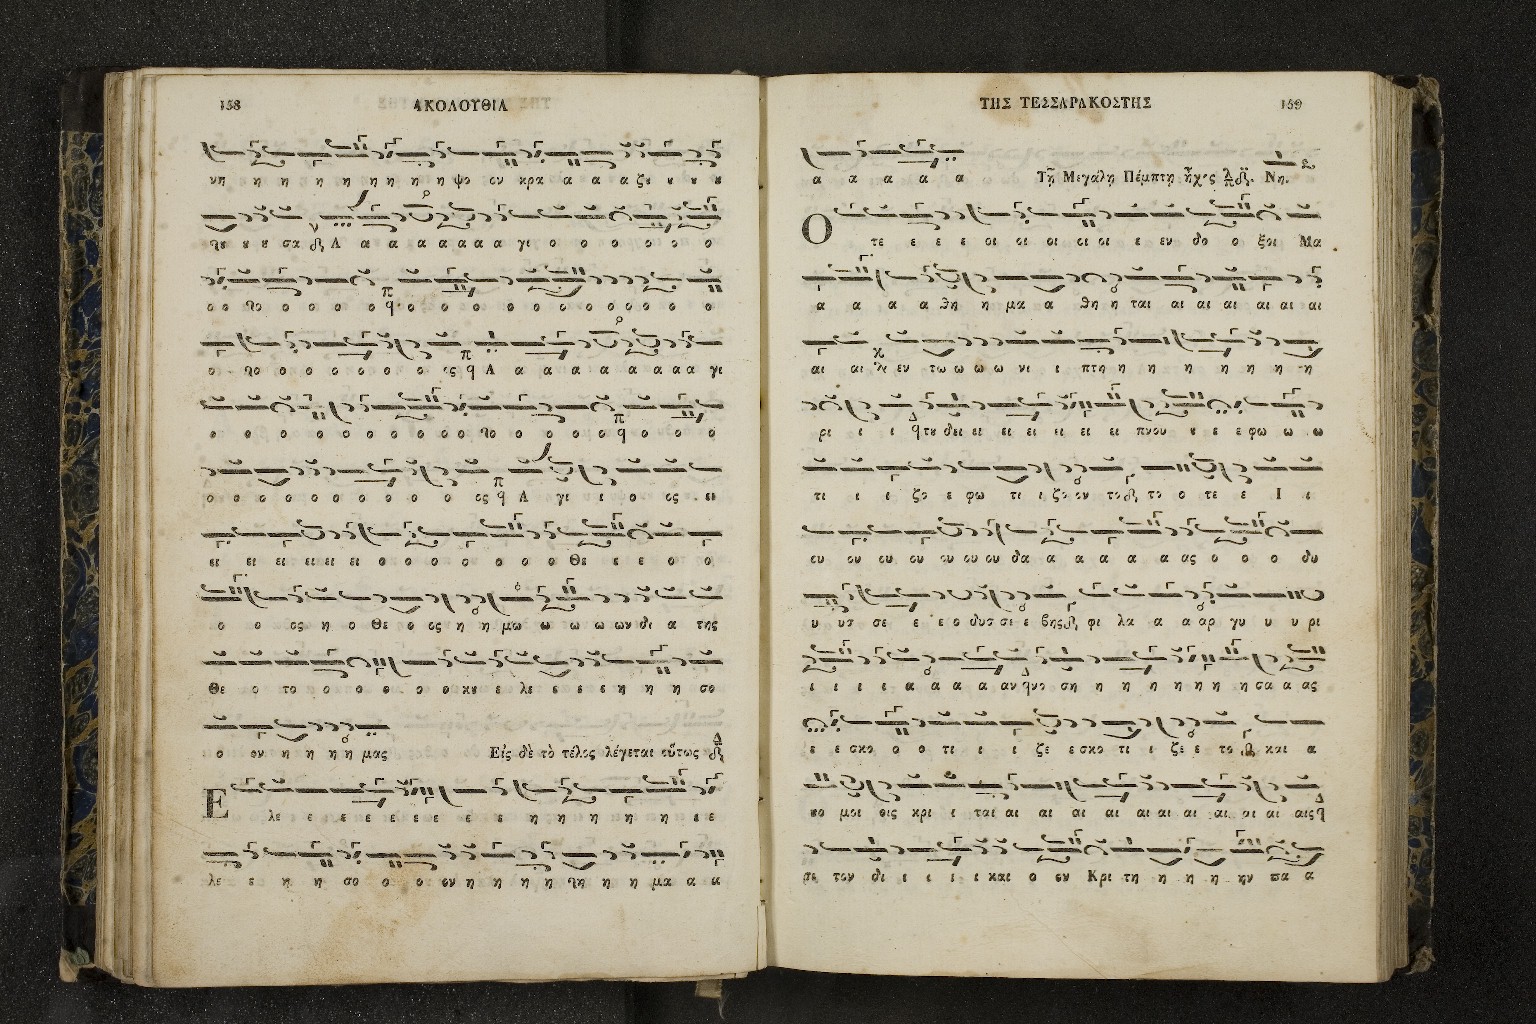 158 ΑΚΟΛΟΥΘΙΑ
νη η η η η η η η η ψο ον κρα α α α ζȣ ȣ ȣ ȣ
ȣ ȣ ȣ σα Α α α α α α α α γι ο ο ο ο ο ο
ο ο ο ο ο ο ο ο ο ο ο ο ο ο ο ο ο ο
ο ο ο ο ο ο ο ο ος Α α α α α α α α α γι
ο ο ο ο ο ο ο ο ο ο ο ο ο ο ο ο ο ο
ο ο ο ο ο ο ο ο ο ο ος Α γι ι ο ος ει
ει ει ει ει ει ει ο ο ο ο ο ο ο Θε ε ε ο ο
ο ο ος η ο Θε ο ος η η μω ω ω ω ων δι α της
Θε ο το ο ο ο ο ο κυ ε λε ε ε ε η η η σο
ο ον η η η η μας Εἰς δὲ τὸ τέλος λέγεται οὕτως
Ε λε ε ε ε ε ε ε ε η η η η η ε ε
λε ε η η σο ο ο ον η η η η η η η μα α α
ΤΗΣ ΤΕΣΣΑΡΑΚΟΣΤΗΣ 159
α α α α α Τῇ Μεγάλῃ Πέμπτῃ ἦχος Νη.
Ο τε ε ε ε οι οι οι οι οι ε εν δο ο ξοι Μα
α α α α θη η μα α θη η ται αι αι αι αι αι αι
αι αι εν τω ω ω ω νι ι πτη η η η η η η η
ρι ι ι τȣ δει ει ει ει ει ει ει πνου ȣ ε ε φω ω ω
τι ι ι ζο ε φω τι ι ζο ον το το ο τε ε Ι ι
ου ου ου ου ου ου ου δα α α α α α ας ο ο ο δυ
υ υσ σε ε ε ο δυσ σε ε βης φι λα α α αρ γυ υ υ ρι
ι ι ι ι α α α α αν νο ση η η η η η η η σα α ας
ε ε σκο ο ο τι ι ι ζε ε σκο τι ι ζε ε το και α
νο μοι οις κρι ι ται αι αι αι αι αι αι αι αι αι αι αις
σε τον δι ι ι ι ι και ο ον Κρι τη η η η ην πα α